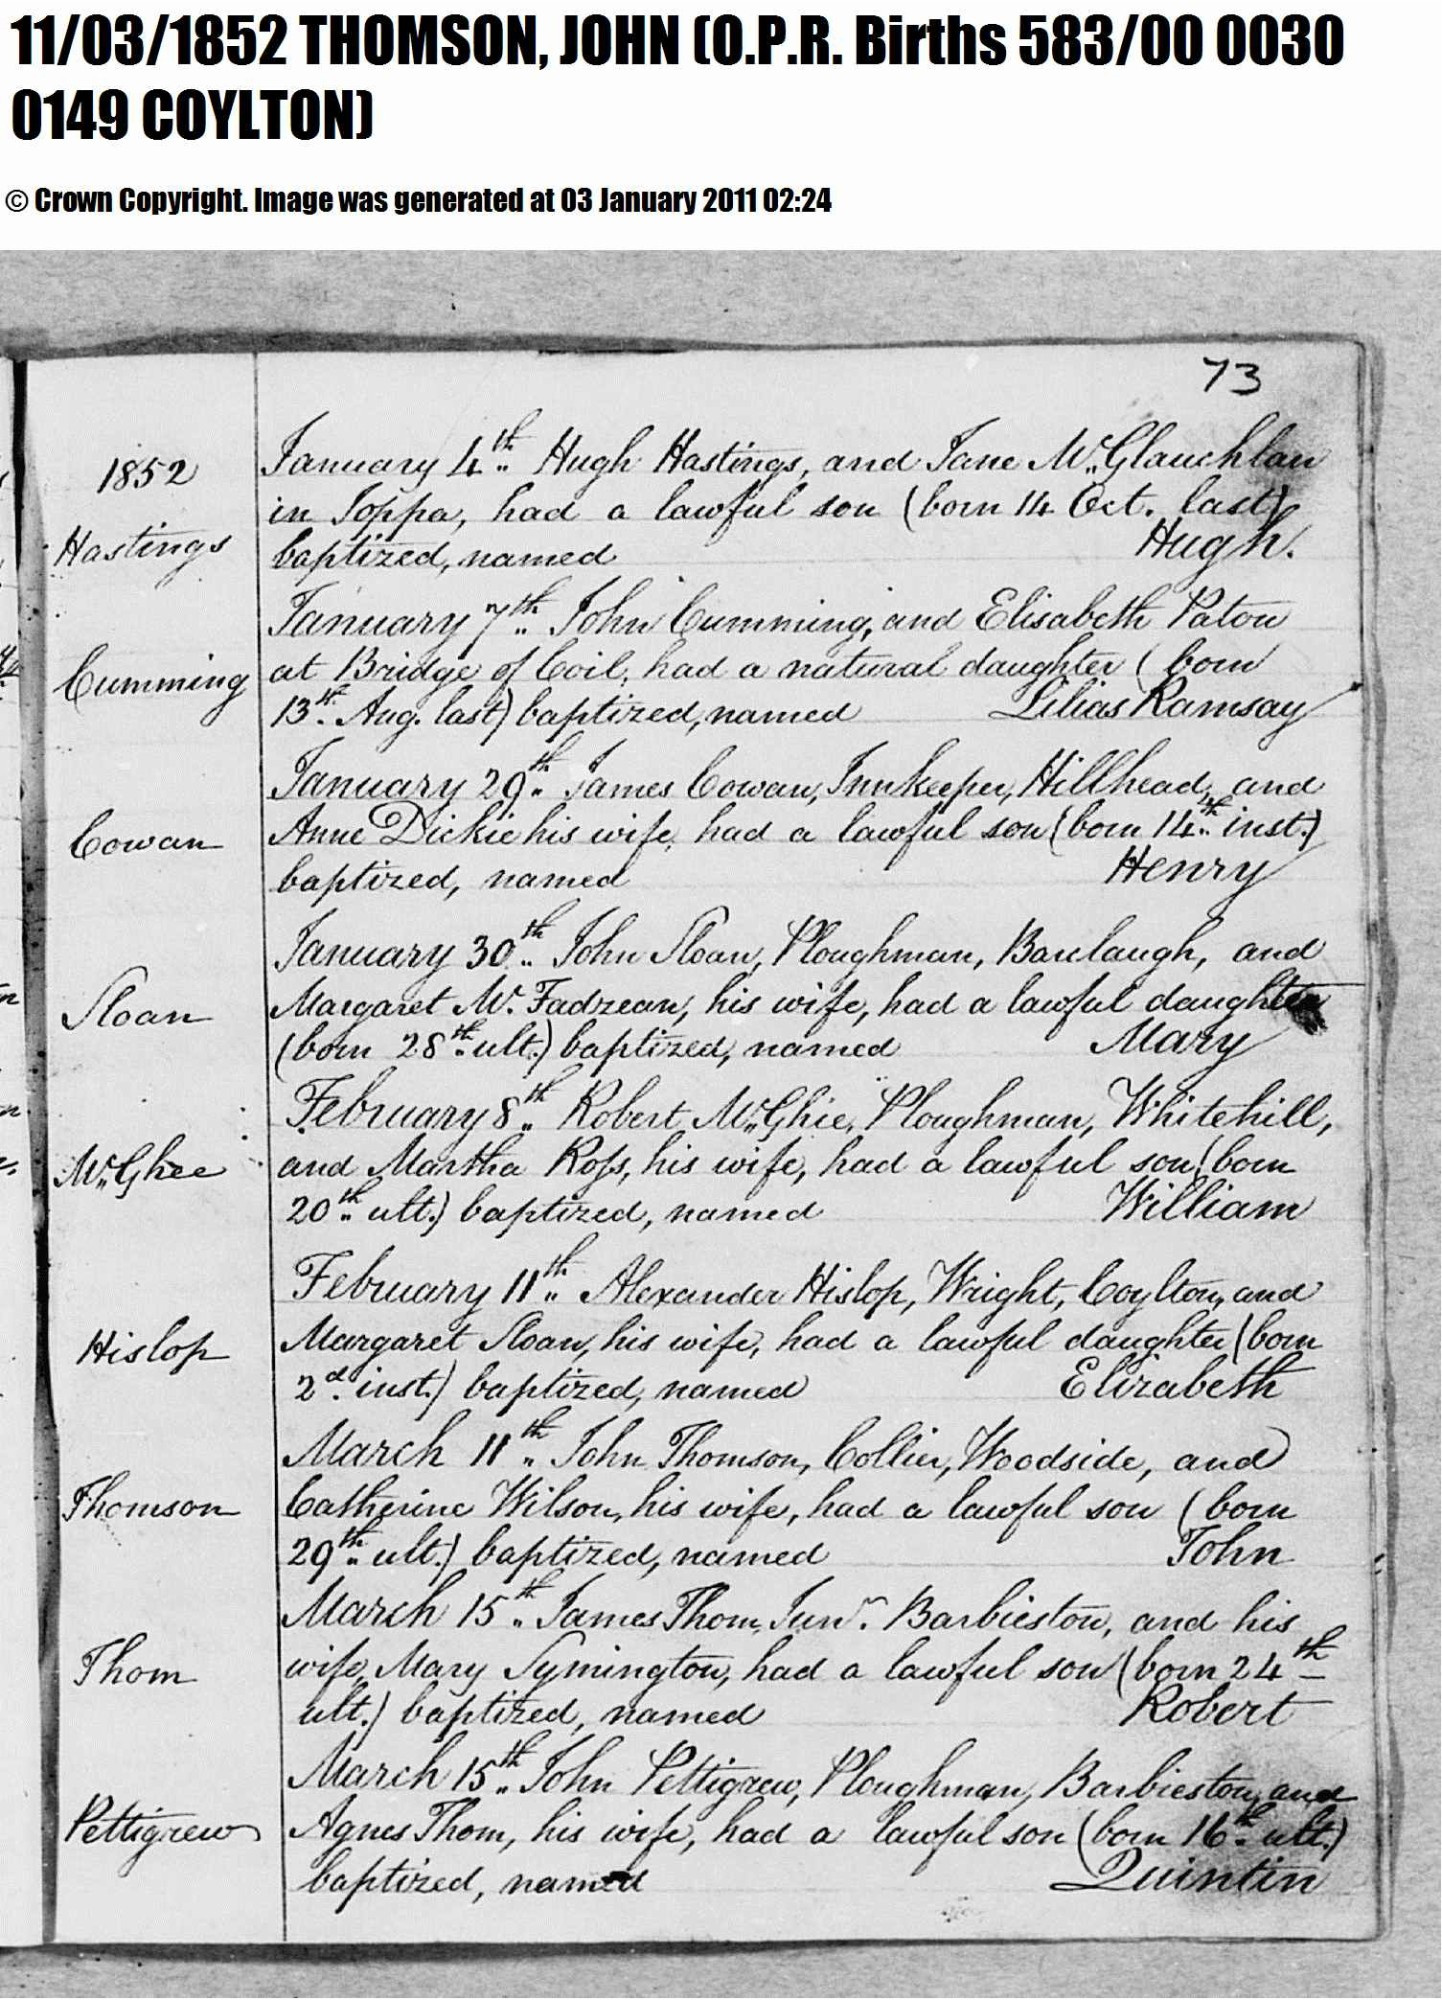 11/03/1852 THOMSON, JOHN (O.P.R. Births 583/00 0030
0149 COYLTON)
© Crown Copyright. Image was generated at 03 January 2011 02:24
73
1852
January 4th Hugh Hastings, and Jane McGlauchlan
in Joppa, had a lawful son (born 14 Oct. last)
Hastings
baptized, named Hugh.
January 7th John Cumming, and Elisabeth Paton
Cumming
at Bridge of Coil, had a natural daughter (born
13th Aug. last) baptized, named Lilias Ramsay
January 29th James Cowan, Innkeeper, Hillhead, and
Cowan
Anne Dickie his wife, had a lawful son (born 14th inst.)
baptized, named Henry
January 30th John Sloan, Ploughman, Barclaugh, and
Sloan
Margaret McFadzean, his wife, had a lawful daughter
(born 28th ult.) baptized, named Mary
February 8th Robert McGhie, Ploughman, Whitehill,
McGhee
and Martha Ross, his wife, had a lawful son (born
20th ult.) baptized, named William
February 11th Alexander Hislop, Wright, Coylton, and
Hislop
Margaret Sloan, his wife, had a lawful daughter (born
2d inst.) baptized, named Elizabeth
March 11th John Thomson, Collier, Woodside, and
Thomson
Catherine Wilson, his wife, had a lawful son (born
29th ult.) baptized, named John
March 15th James Thom, Junr. Barbieston, and his
Thom
wife, Mary Symington, had a lawful son (born 24th
ult.) baptized, named Robert
March 15th John Pettigrew, Ploughman, Barbieston, and
Pettigrew
Agnes Thom, his wife, had a lawful son (born 16th ult.)
baptized, named Quintin